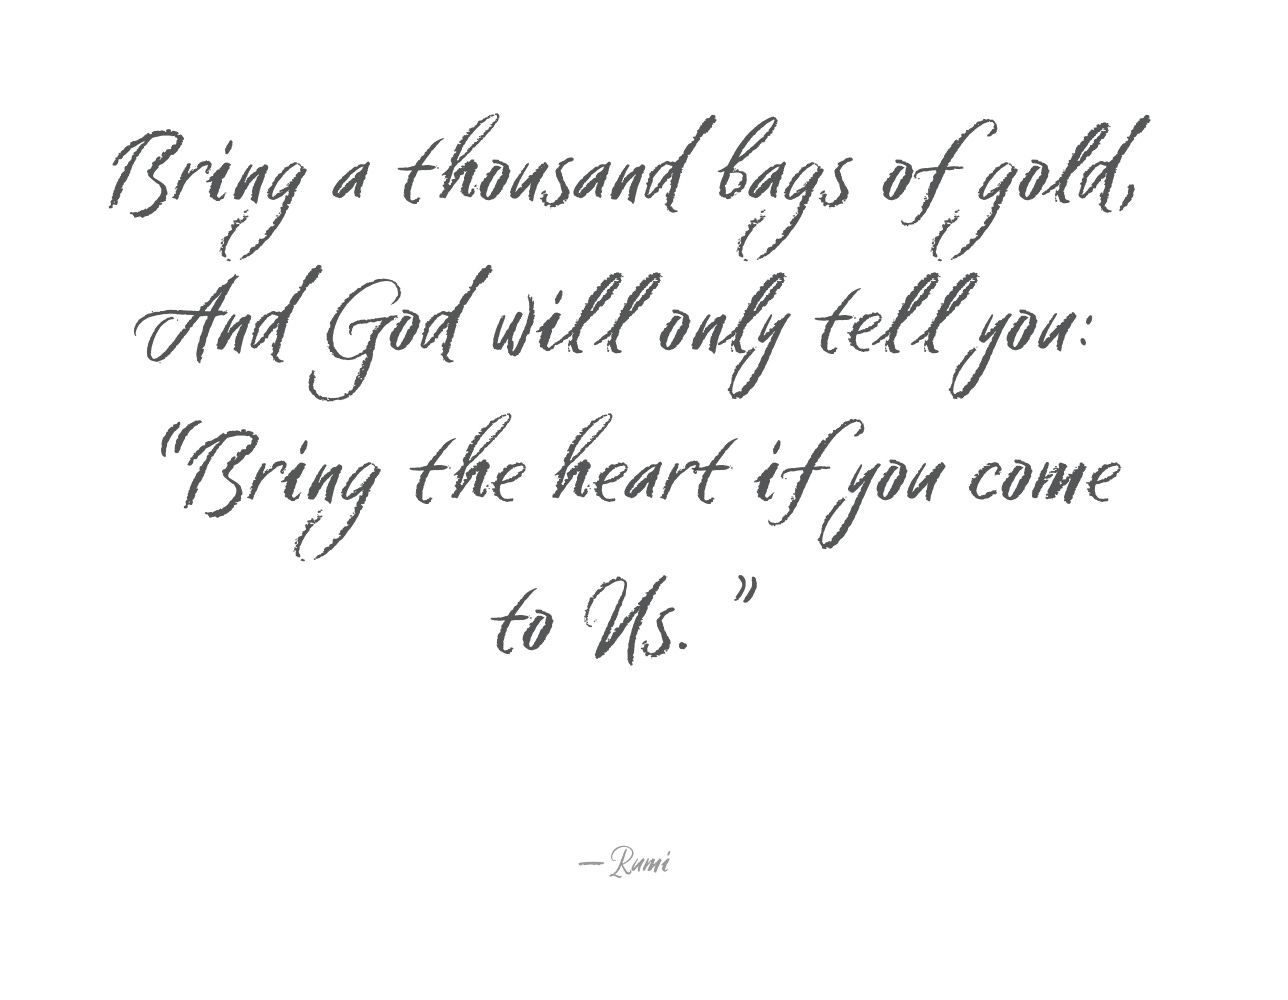 Bring a thousand bags of gold,
And God will only tell you:
“Bring the heart if you come
to Us. ”
— Rumi